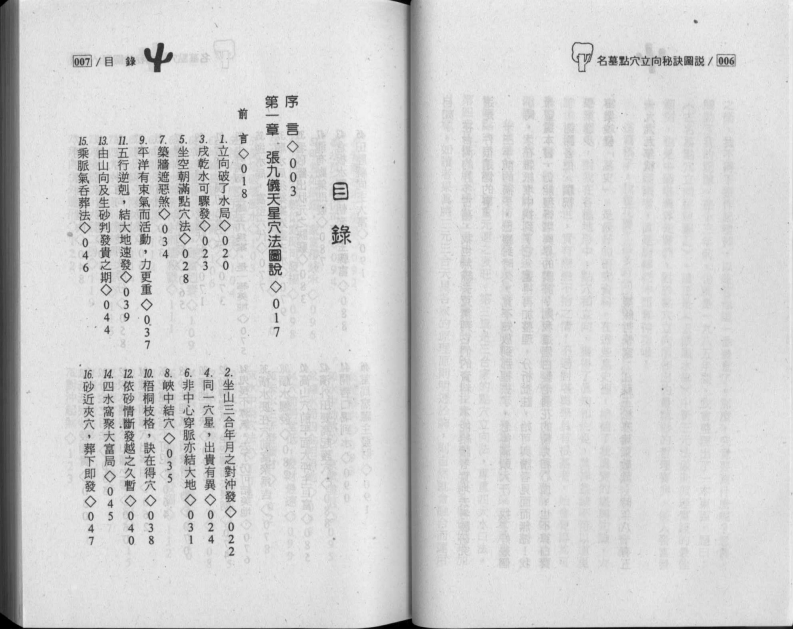 名墓點穴立向秘訣圖説 / 006
007 / 目 錄
目 錄
序 言◇003
第一章 張九儀天星穴法圖說◇017
前 言◇018
1. 立向破了水局◇020
2. 坐山三合年月之對沖發◇022
3. 戌乾水可驟發◇023
4. 同一穴星，出貴有異◇024
5. 坐空朝滿點穴法◇028
6. 非中心穿脈亦結大地◇031
7. 築牆遮惡煞◇034
8. 峽中結穴◇035
9. 平洋有束氣而活動，力更重◇037
10. 梧桐枝格，訣在得穴◇038
11. 五行逆剋，結大地速發◇039
12. 依砂情斷發越之久暫◇040
13. 由山向及生砂判發貴之期◇044
14. 四水窩聚大富局◇045
15. 乘脈氣吞葬法◇046
16. 砂近夾穴，葬下即發◇047